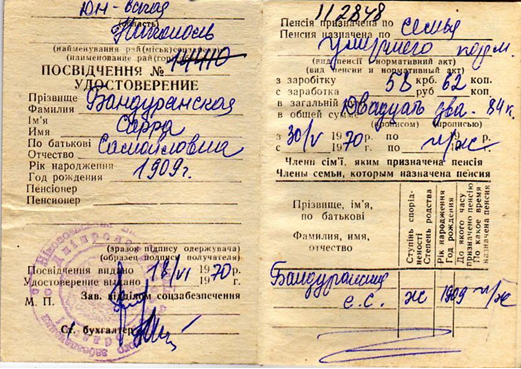 (область)
Никополь
(найменування рай (міськ)соцзабезу)
(наименование рай(гор)
ПОСВІДЧЕННЯ № 14410
УДОСТОВЕРЕНИЕ
Прізвище Бандуранская
Фамилия
Ім'я
Имя Сарра
По батькові Самойловна
Отчество
Рік народження 1909г.
Год рождения
Пенсіонер
Пенсионер
(зразок підпису одержувача)
(образец подписи получателя)
Посвідчення видано 18/VI 1970р.
Удостоверение выдано г.
Зав. відділом соцзабезпечення
М. П.
Ст. бухгалтер
112848
Пенсія призначена по семья
Пенсия назначена по
умершего корм.
(вид пенсії (нормативний акт)
(вид пенсии и нормативный акт)
з заробітку 58 крб. 62 коп.
с заработка руб. коп.
в загальній Двадцать два. 84к.
в общей сумме
(прописом) (прописью)
з 30/V 1970р. по п/ж р.
с по г.
Члени сім'ї, яким призначена пенсія
Члены семьи, которым назначена пенсия
Прізвище, ім'я,
по батькові
Фамилия, имя,
отчество
Ступінь спорід-
неності
Степень родства
Рік народження
Год рождения
До якого часу
призначено пенсію
По какое время
назначена пенсия
С.С. ж 1909 п/ж